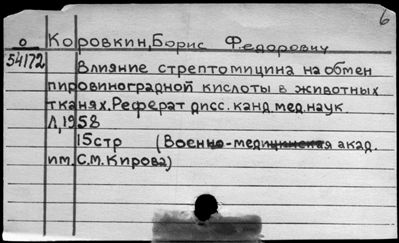 6
О Коровкин, Борис Федорович
54172 Влияние стрептомицина на обмен
пировиноградной кислоты в животных
тканях. Реферат дисс. канд. мед. наук
Л, 1958
15стр (Военно-медицинская акад.
им. С.М. Кирова)